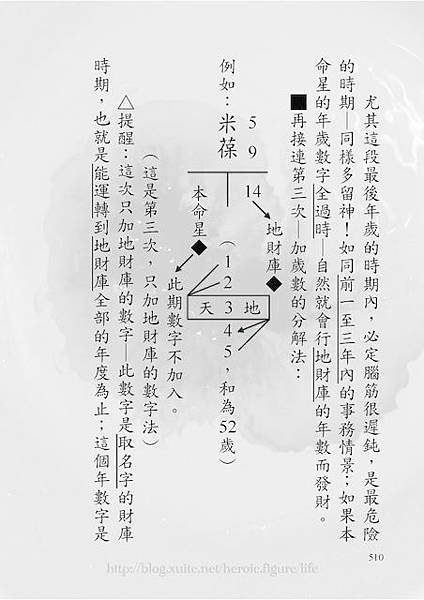 尤其這段最後年歲的時期內，必定腦筋很遲鈍，是最危險
的時期—同樣多留神！如同前一至三年內的事務情景；如果本
命星的年歲數字全過時—自然就會行地財庫的年數而發財。
■再接連第三次—加歲數的分解法：
例如：米葆
5 9
14
地財庫◆
本命星◆
（1 2 3 4 5，和為52歲）
天 地
此期數字不加入。
（這是第三次，只加地財庫的數字法）
△提醒：這次只加地財庫的數字—此數字是取名字的財庫
時期，也就是能運轉到地財庫全部的年度為止；這個年數字是
510
http://blog.xuite.net/heroic.figure/life